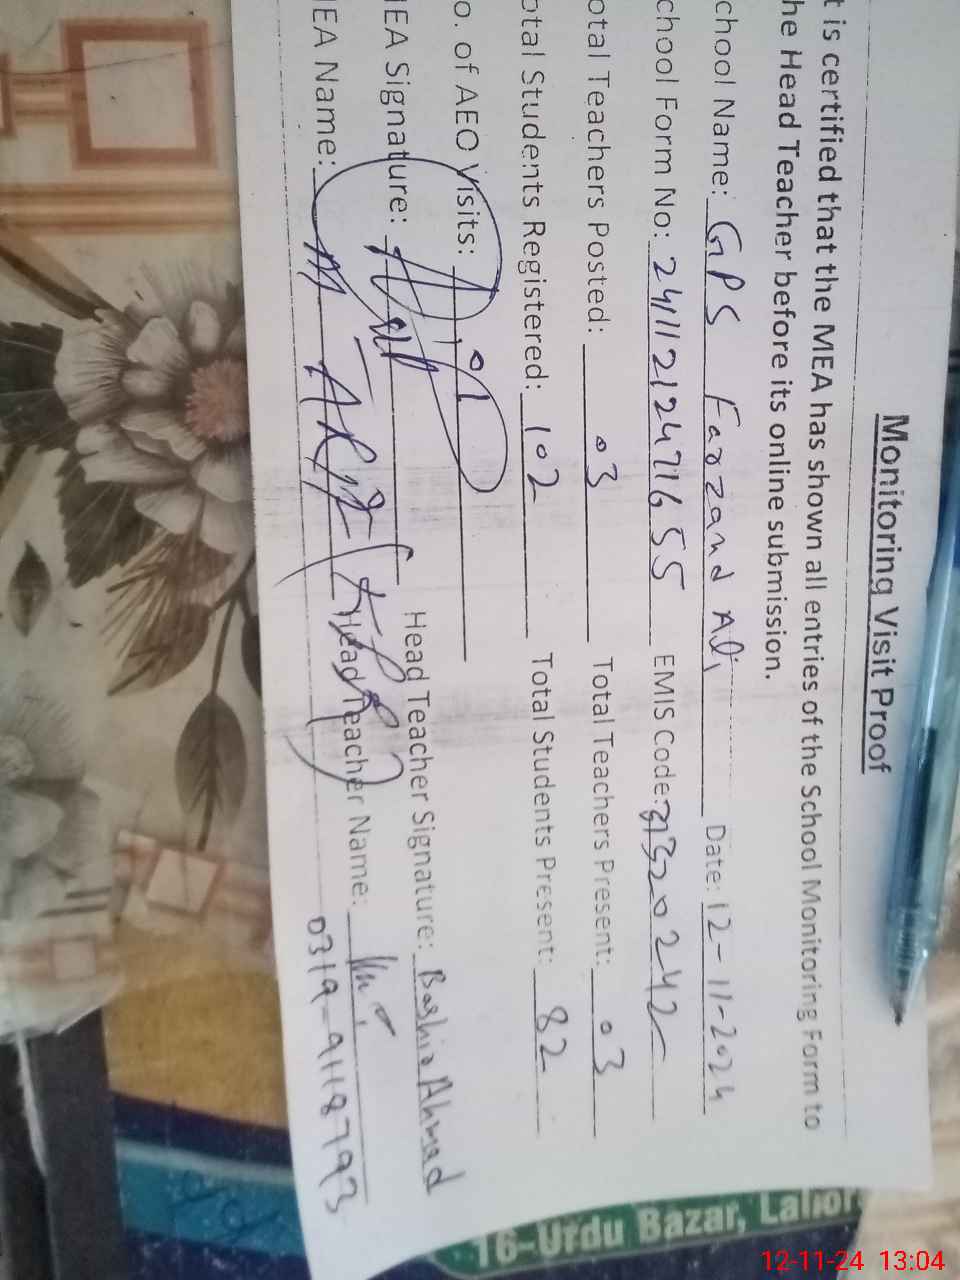 Monitoring Visit Proof
t is certified that the MEA has shown all entries of the School Monitoring Form to
he Head Teacher before its online submission.
chool Name: GPS Farzand Ali Date: 12-11-2024
chool Form No: 24111212471655 EMIS Code: 31320242
otal Teachers Posted: 03 Total Teachers Present: 03
otal Students Registered: 102 Total Students Present: 82
o. of AEO Visits:
IEA Signature: Head Teacher Signature: Bashir Ahmad
IEA Name: M Head Teacher Name:
0319-9118793
16-Urdu Bazar, Lahor
12-11-24 13:04